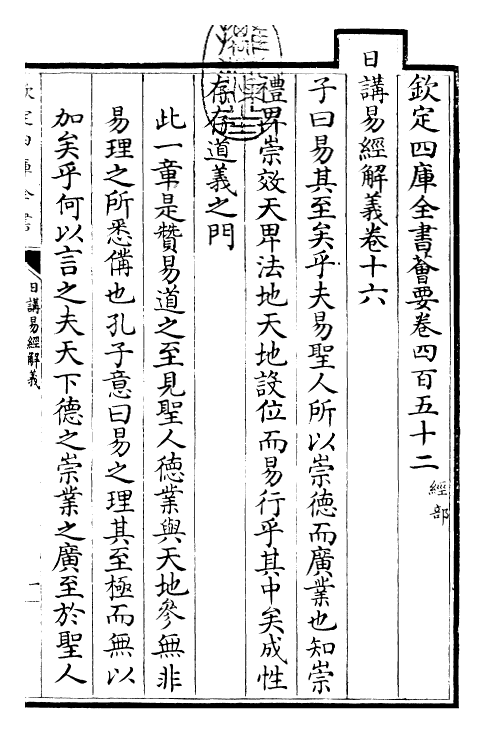 欽定四庫全書薈要卷四百五十二 經部
日講易經解義卷十六
子曰易其至矣乎夫易聖人所以崇德而廣業也知崇
禮卑崇效天卑法地天地設位而易行乎其中矣成性
存存道義之門
此一章是贊易道之至見聖人德業與天地參無非
易理之所悉備也孔子意曰易之理其至極而無以
加矣乎何以言之夫天下德之崇業之廣至於聖人
欽定四庫全書
日講易經解義
一